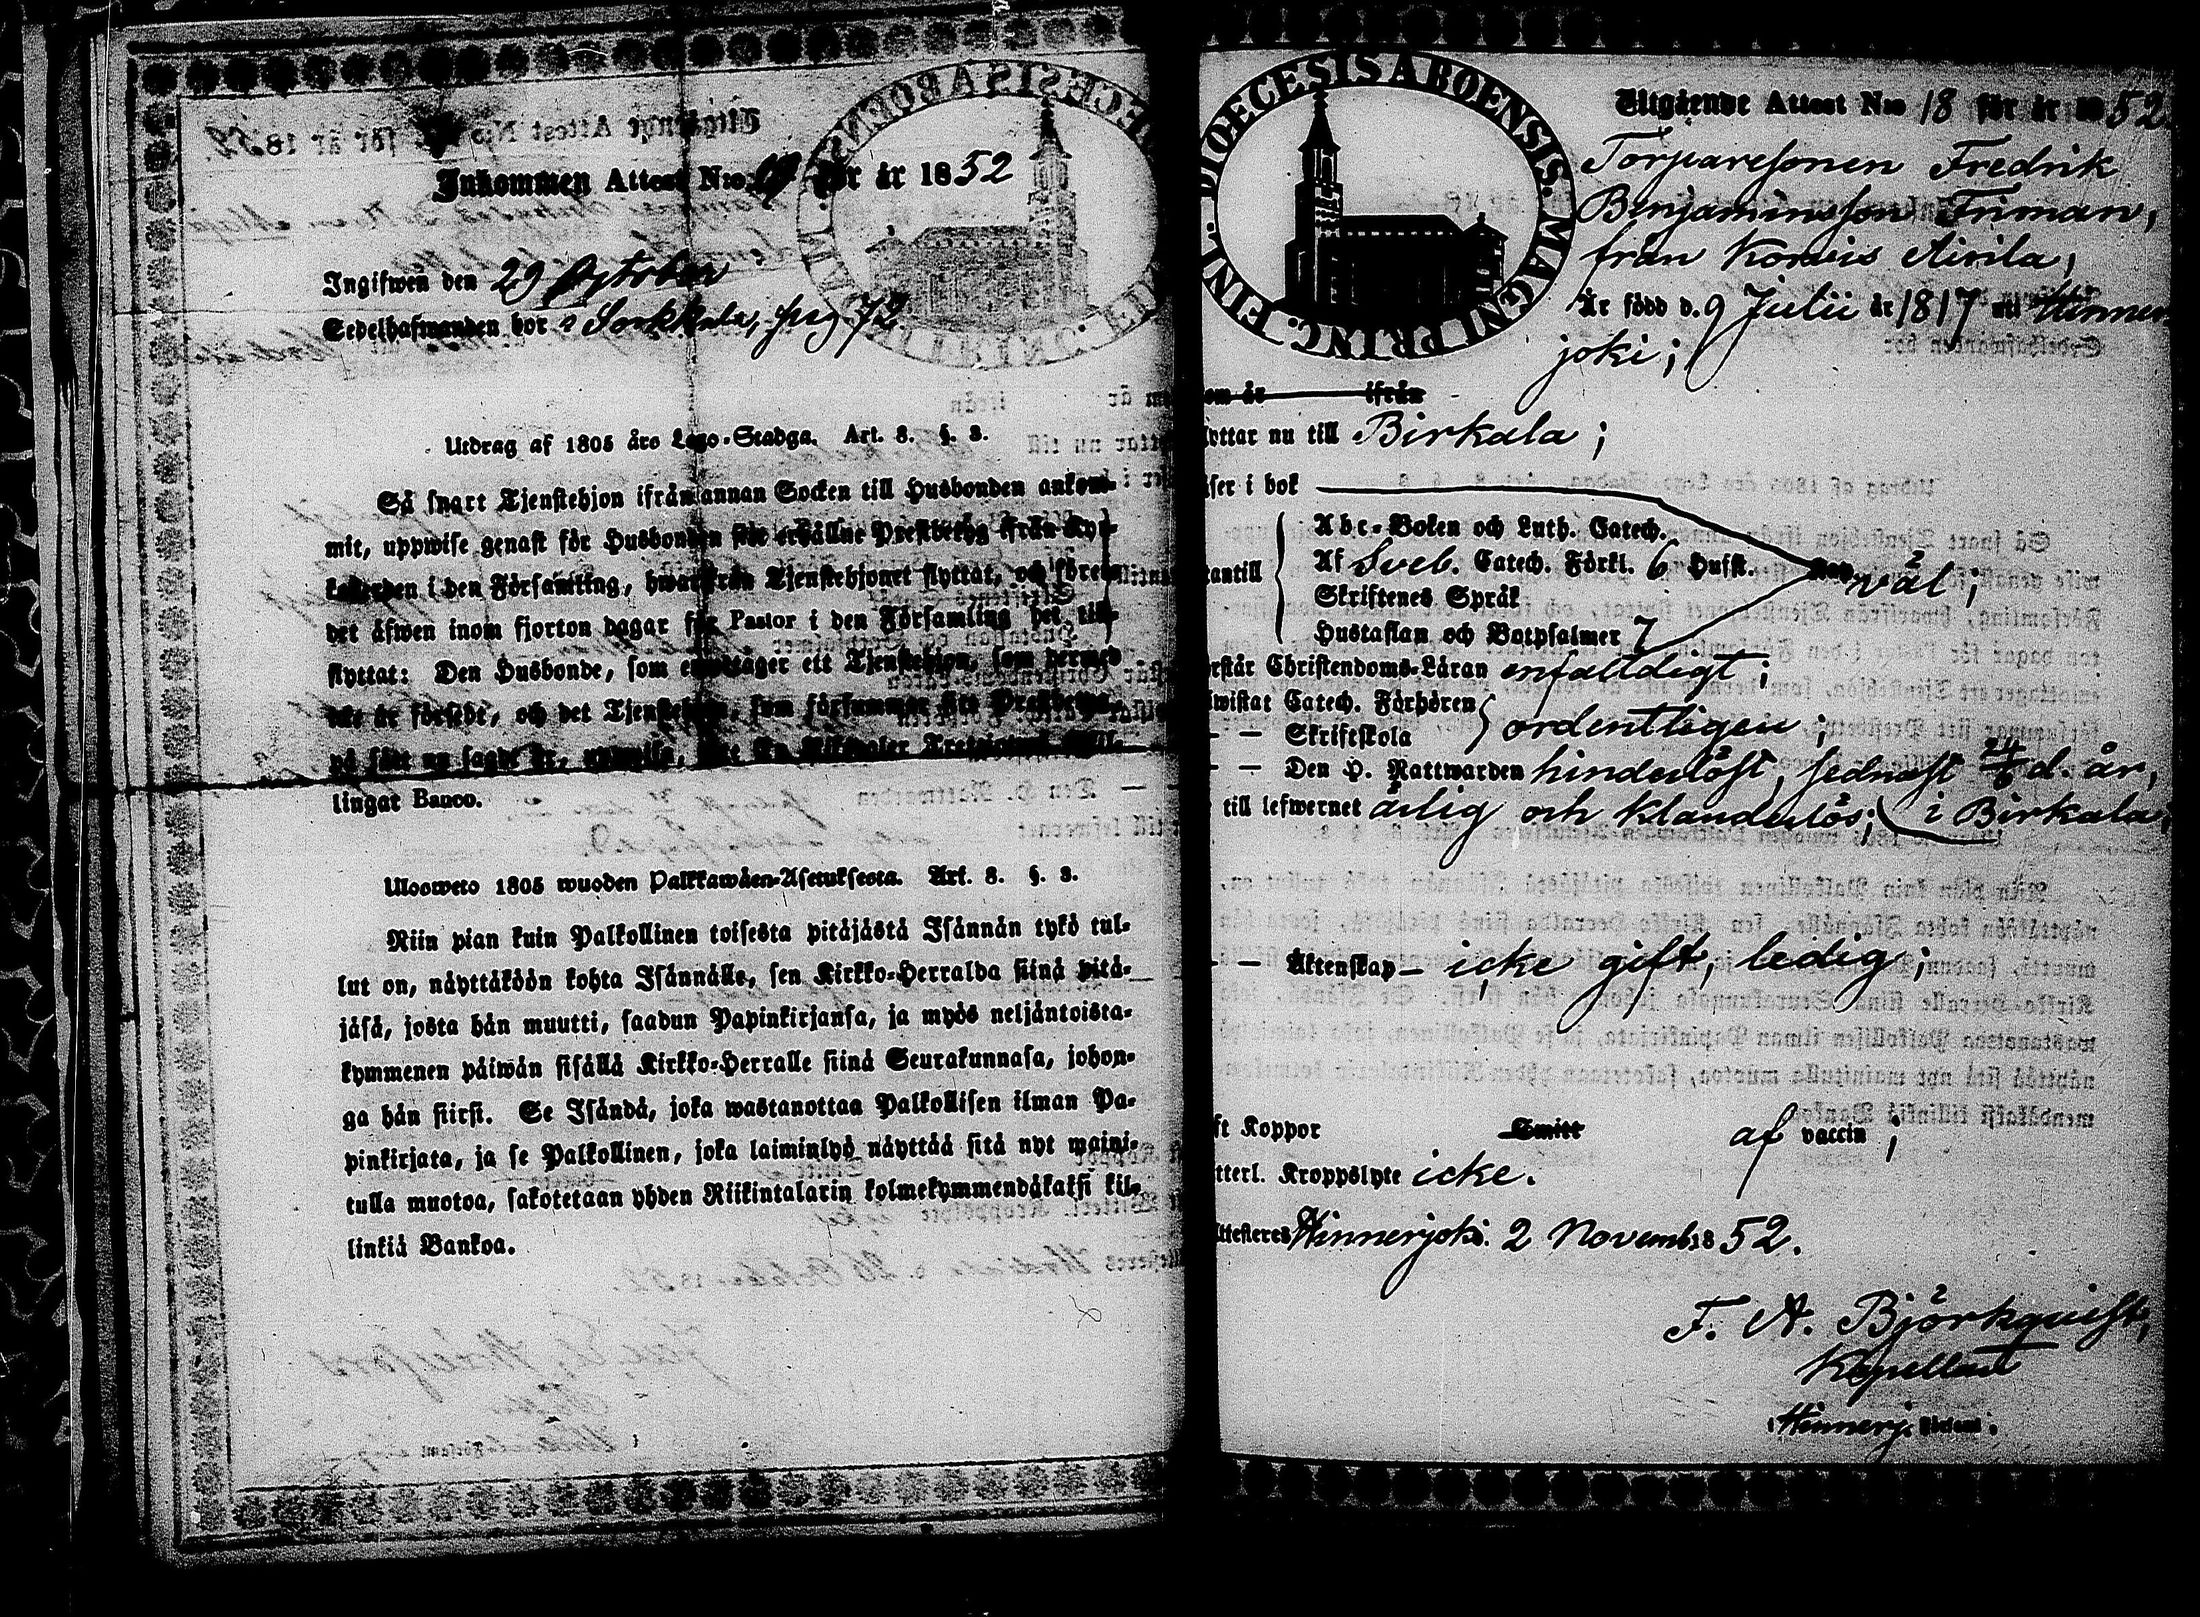 Inkommen Attest N:o 19 för år 1852
Ingifwen den 29 October
Sedelhafwanden bor i Sorkkala, pag 72.
Utdrag af 1805 års Lego-Stadga. Art. 8. §. 3.
Så snart Tjenstehjon ifrån annan Socken till Husbonden ankom-
mit, uppwise genast för Husbonden sitt erhållne Prestbetyg ifrån Kyr-
koherden i den Församling, hwarifrån Tjenstehjonet flyttat, och förete
det äfwen inom fjorton dagar för Pastor i den Församling det till-
flyttat: Den Husbonde, som emottager ett Tjenstehjon, som dermed
icke är försedt, och det Tjenstehjon, som försummar sitt Prestbetyg
på sätt nu sagdt är, uppwisa,
lingar Banco.
Ulosweto 1805 wuoden Palkkawäen-Asetuksesta. Art. 8. §. 3.
Niin pian kuin Palkollinen toisesta pitäjästä Isännän tykö tul-
lut on, näyttäköön kohta Isännälle, sen Kirkko-Herralda siinä pitä-
jäsä, josta hän muutti, saadun Papinkirjansa, ja myös neljäntoista-
kymmenen päiwän sisällä Kirkko-Herralle siinä Seurakunnasa, johon-
ga hän siirsi. Se Isändä, joka wastanottaa Palkollisen ilman Pa-
pinkirjata, ja se Palkollinen, joka laiminlyö näyttää sitä nyt maini-
tulla muotoa, sakotetaan yhden Riikintalarin kolmekymmendäkaksi kil-
linkiä Bankoa.
DIOECESIS ABOENSIS. MAGNI PRINC. FINL.
Utgående Attest N:o 18 för år 1852.
Torparesonen Fredrik
Benjaminsson Friman,
från Korvis Airila,
Är född d. 9 Julii år 1817 uti Hinner-
joki;
om år ifrån
yttar nu till Birkala;
äser i bok
Abc-Boken och Luth. Catech.
antill Af Sveb. Catech. Förkl. 6 Hufst. väl;
Skriftenes Språk
Hustaflan och Botpsalmer 7
rstår Christendoms-Läran enfaldigt;
wistat Catech. Förhören
— — Skriftskola ordentligen;
— — Den H. Nattwarden hinderlöst, sednast 24/6 d. år,
till lefwernet ärlig och klanderlös; i Birkala;
— — Äktenskap — icke gift, ledig;
ft Koppor Smitt af vaccin;
tterl. Kroppslyte icke.
ttesteres Hinnerjoki. 2 Novemb. 1852.
F. A. Björkqvist,
Kapellant
i Hinnerj. Församl.